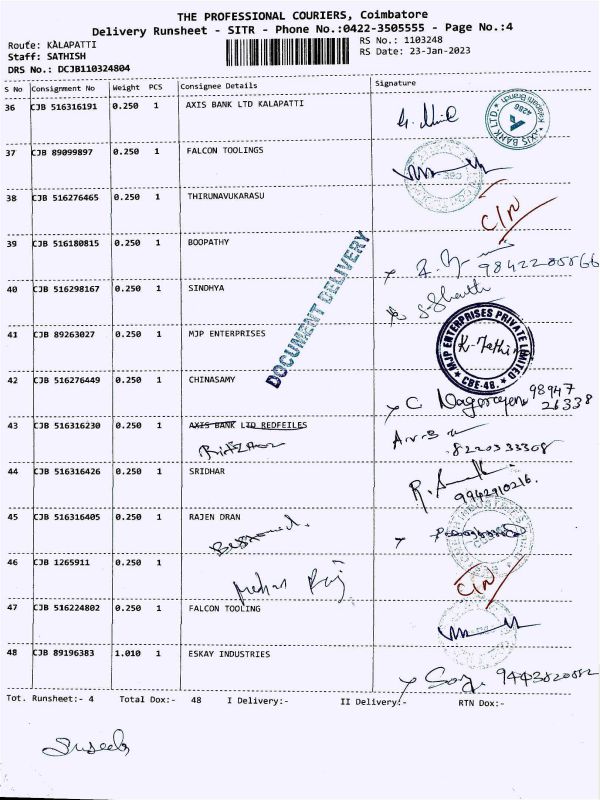 THE PROFESSIONAL COURIERS, Coimbatore
Delivery Runsheet - SITR - Phone No.:0422-3505555 - Page No.:4
Route: KALAPATTI
RS No.: 1103248
Staff: SATHISH
RS Date: 23-Jan-2023
DRS No.: DCJB110324804
S No Consignment No Weight PCS Consignee Details Signature
36 CJB 516316191 0.250 1 AXIS BANK LTD KALAPATTI
AXIS BANK LTD. 4286
37 CJB 89099897 0.250 1 FALCON TOOLINGS
38 CJB 516276465 0.250 1 THIRUNAVUKARASU
C/N
39 CJB 516180815 0.250 1 BOOPATHY
40 CJB 516298167 0.250 1 SINDHYA
DOCUMENT DELIVERY
41 CJB 89263027 0.250 1 MJP ENTERPRISES
MJP ENTERPRISES PRIVATE LIMITED CBE-48.
42 CJB 516276449 0.250 1 CHINASAMY
C Nagarajen 98947
26338
43 CJB 516316230 0.250 1 AXIS BANK LTD REDFEILES
8220333308
44 CJB 516316426 0.250 1 SRIDHAR
9942910216.
45 CJB 516316405 0.250 1 RAJEN DRAN
46 CJB 1265911 0.250 1
Mohan Raj
C/N
47 CJB 516224802 0.250 1 FALCON TOOLING
48 CJB 89196383 1.010 1 ESKAY INDUSTRIES
9443820582
Tot. Runsheet:- 4 Total Dox:- 48 I Delivery:- II Delivery:- RTN Dox:-